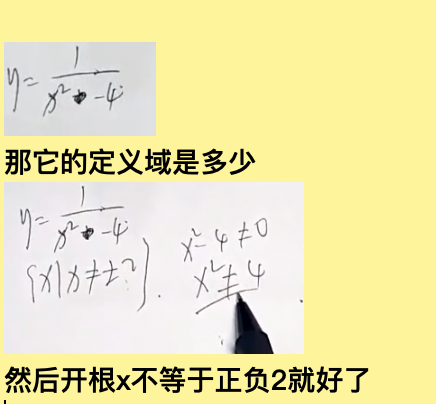 y = 1/(x² - 4)
那它的定义域是多少
y = 1/(x² - 4)
x² - 4 ≠ 0
{x|x ≠ ±2}.
x² ≠ 4
然后开根x不等于正负2就好了